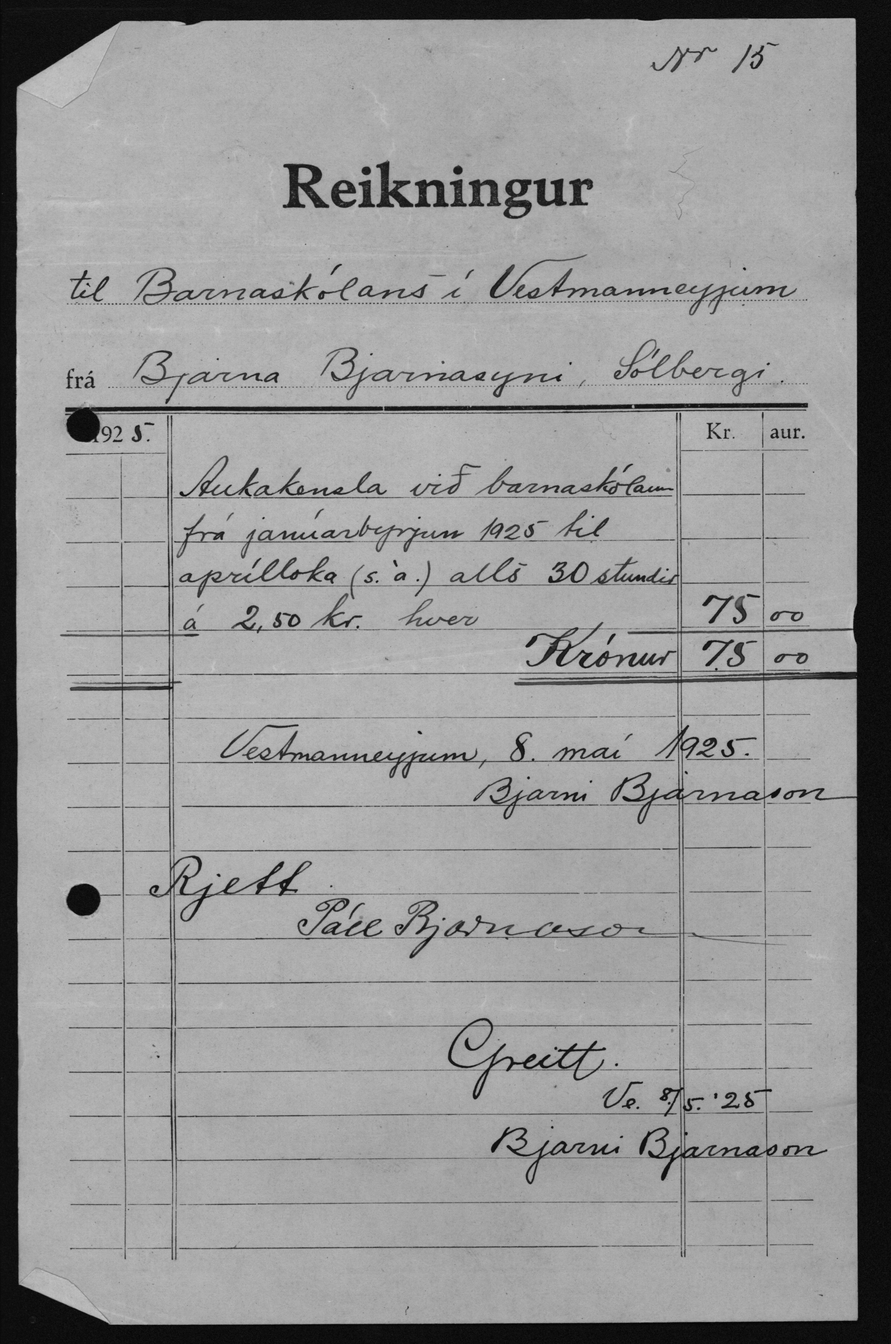 Nr 15
Reikningur
til Barnaskólans í Vestmanneyjum
frá Bjarna Bjarnasyni, Sólbergi.
1925. Kr. aur.
Aukakensla við barnaskólann
frá janúarbyrjun 1925 til
aprílloka (s. á.) alls 30 stundir
á 2,50 kr. hver 75 00
Krónur 75 00
Vestmanneyjum, 8. maí 1925.
Bjarni Bjarnason
Rjett
Páll Bjarnason
Greitt.
Ve. 8/5. '25
Bjarni Bjarnason